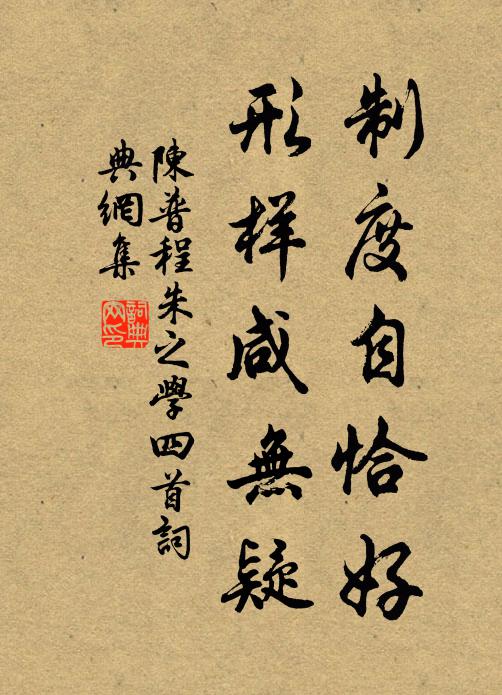 制度自恰好
形样咸無疑
陳普程朱之學四首詞
典網集
詞典
网印